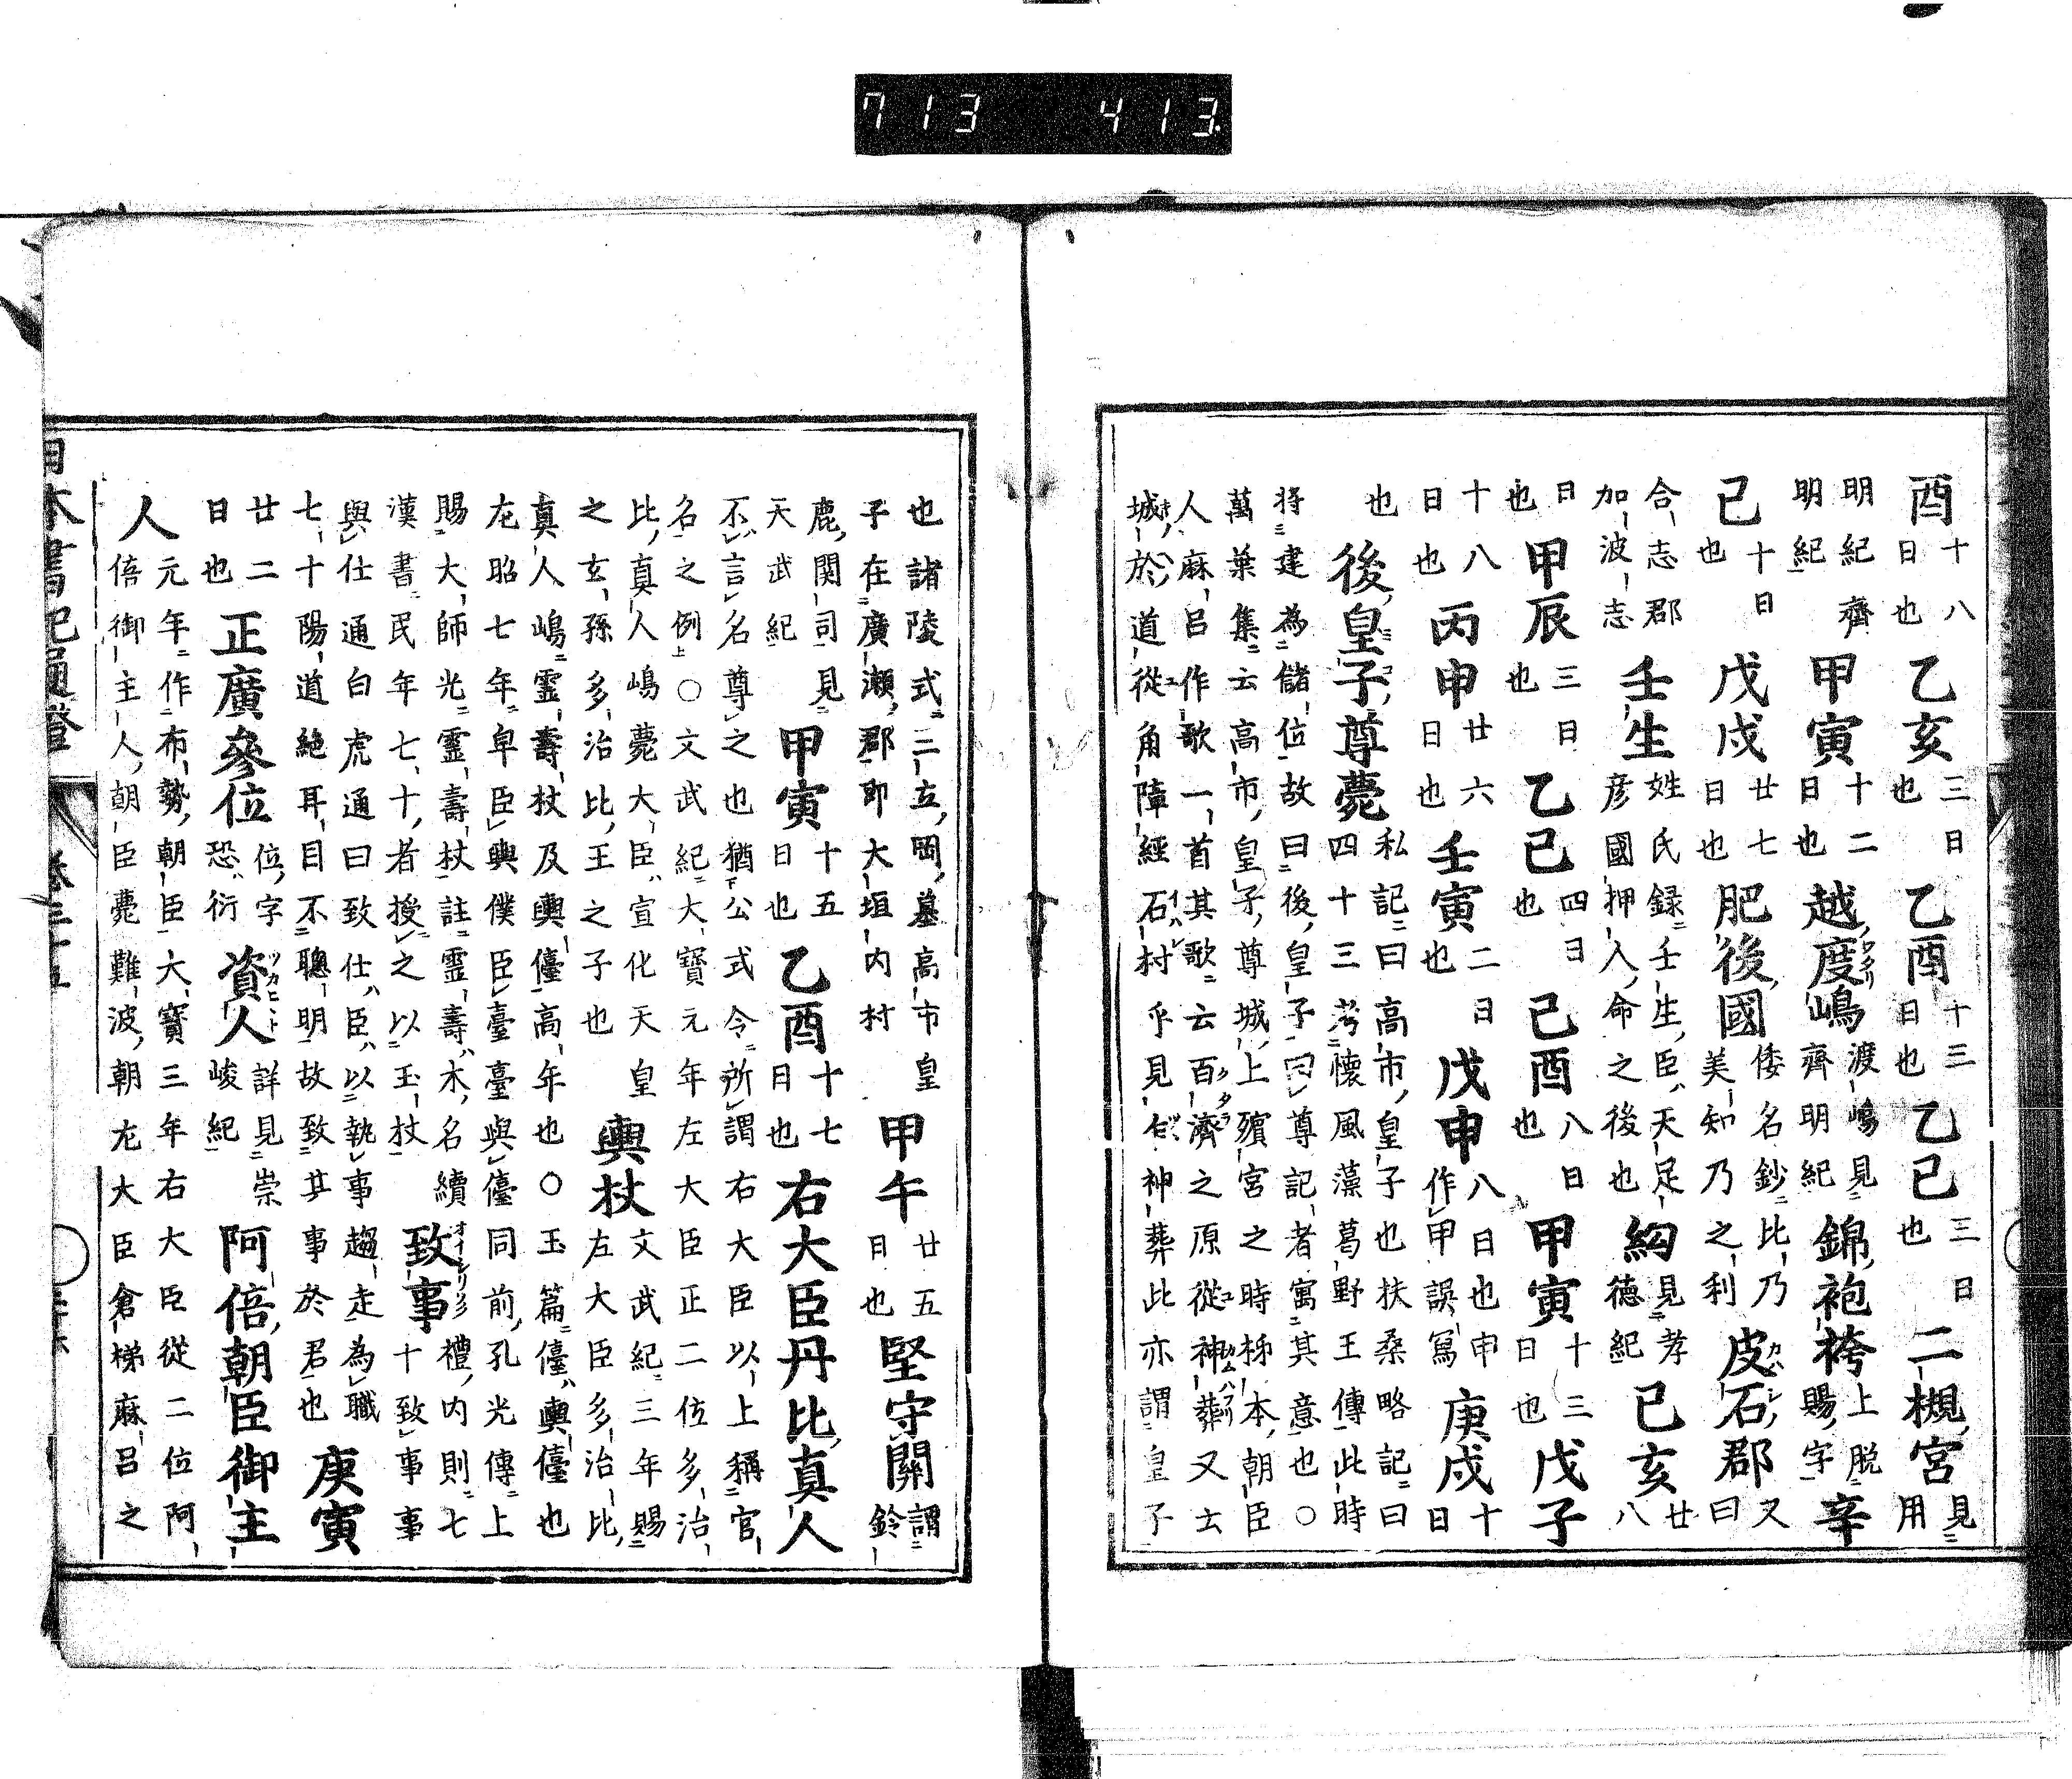 酉 十八日也 乙亥 三日也 乙酉 十三日也 乙巳 三日也 二槻宮 見用
明紀齊明紀 甲寅 十二日也 越度嶋 渡嶋見齊明紀 錦袍袴 上脱賜字 辛
己 十日也 戊戌 廿七日也 肥後國 倭名鈔比乃美知乃之利 皮石郡 又曰
合志郡加波志 壬生 姓氏録壬生臣天足彦國押人命之後也 絇 見孝德紀 已亥 廿八
日也 甲辰 三日也 乙巳 四日也 己酉 八日也 甲寅 十三日也 戊子
十八日也 丙申 廿六日也 壬寅 二日也 戊申 八日也申作甲誤寫 庚戌 十日
也 後皇子尊薨 私記曰高市皇子也扶桑略記曰四十三考懷風藻葛野王傳此時
將建為儲位故曰後皇子曰尊記者寓其意也○
萬葉集云高市皇子尊城上殯宮之時柹本朝臣
人麻呂作歌一首其歌云百濟之原從神葬又士
城於道從角障經石村乎見仁神葬此亦謂皇子
也諸陵式三立岡墓高市皇子在廣瀬郡即大垣内村 甲午 廿五日也 堅守關 謂鈴
鹿關司見天武紀 甲寅 十五日也 乙酉 十七日也 右大臣丹比真人
不言名尊之也猶公式令所謂右大臣以上稱官
名之例○文武紀大寶元年左大臣正二位多治
比真人嶋薨大臣宣化天皇之玄孫多治比王之子也 輿杖 文武紀三年賜左大臣多治比
真人嶋靈壽杖及輿儓高年也○玉篇儓輿儓也
左昭七年皁臣輿僕臣臺臺與儓同前孔光傳上
賜大師光靈壽杖註靈壽木名續漢書民年七十者授之以玉杖 致事 禮内則七十致事事
與仕通白虎通曰致仕臣以執事趨走為職七十陽道絶耳目不聰明故致其事於君也 庚寅
廿二日也 正廣參位 位字恐衍 資人 詳見崇峻紀 阿倍朝臣御主
人 元年作布勢朝臣大寶三年右大臣從二位阿
倍御主人朝臣薨難波朝左大臣倉梯麻呂之
713 413